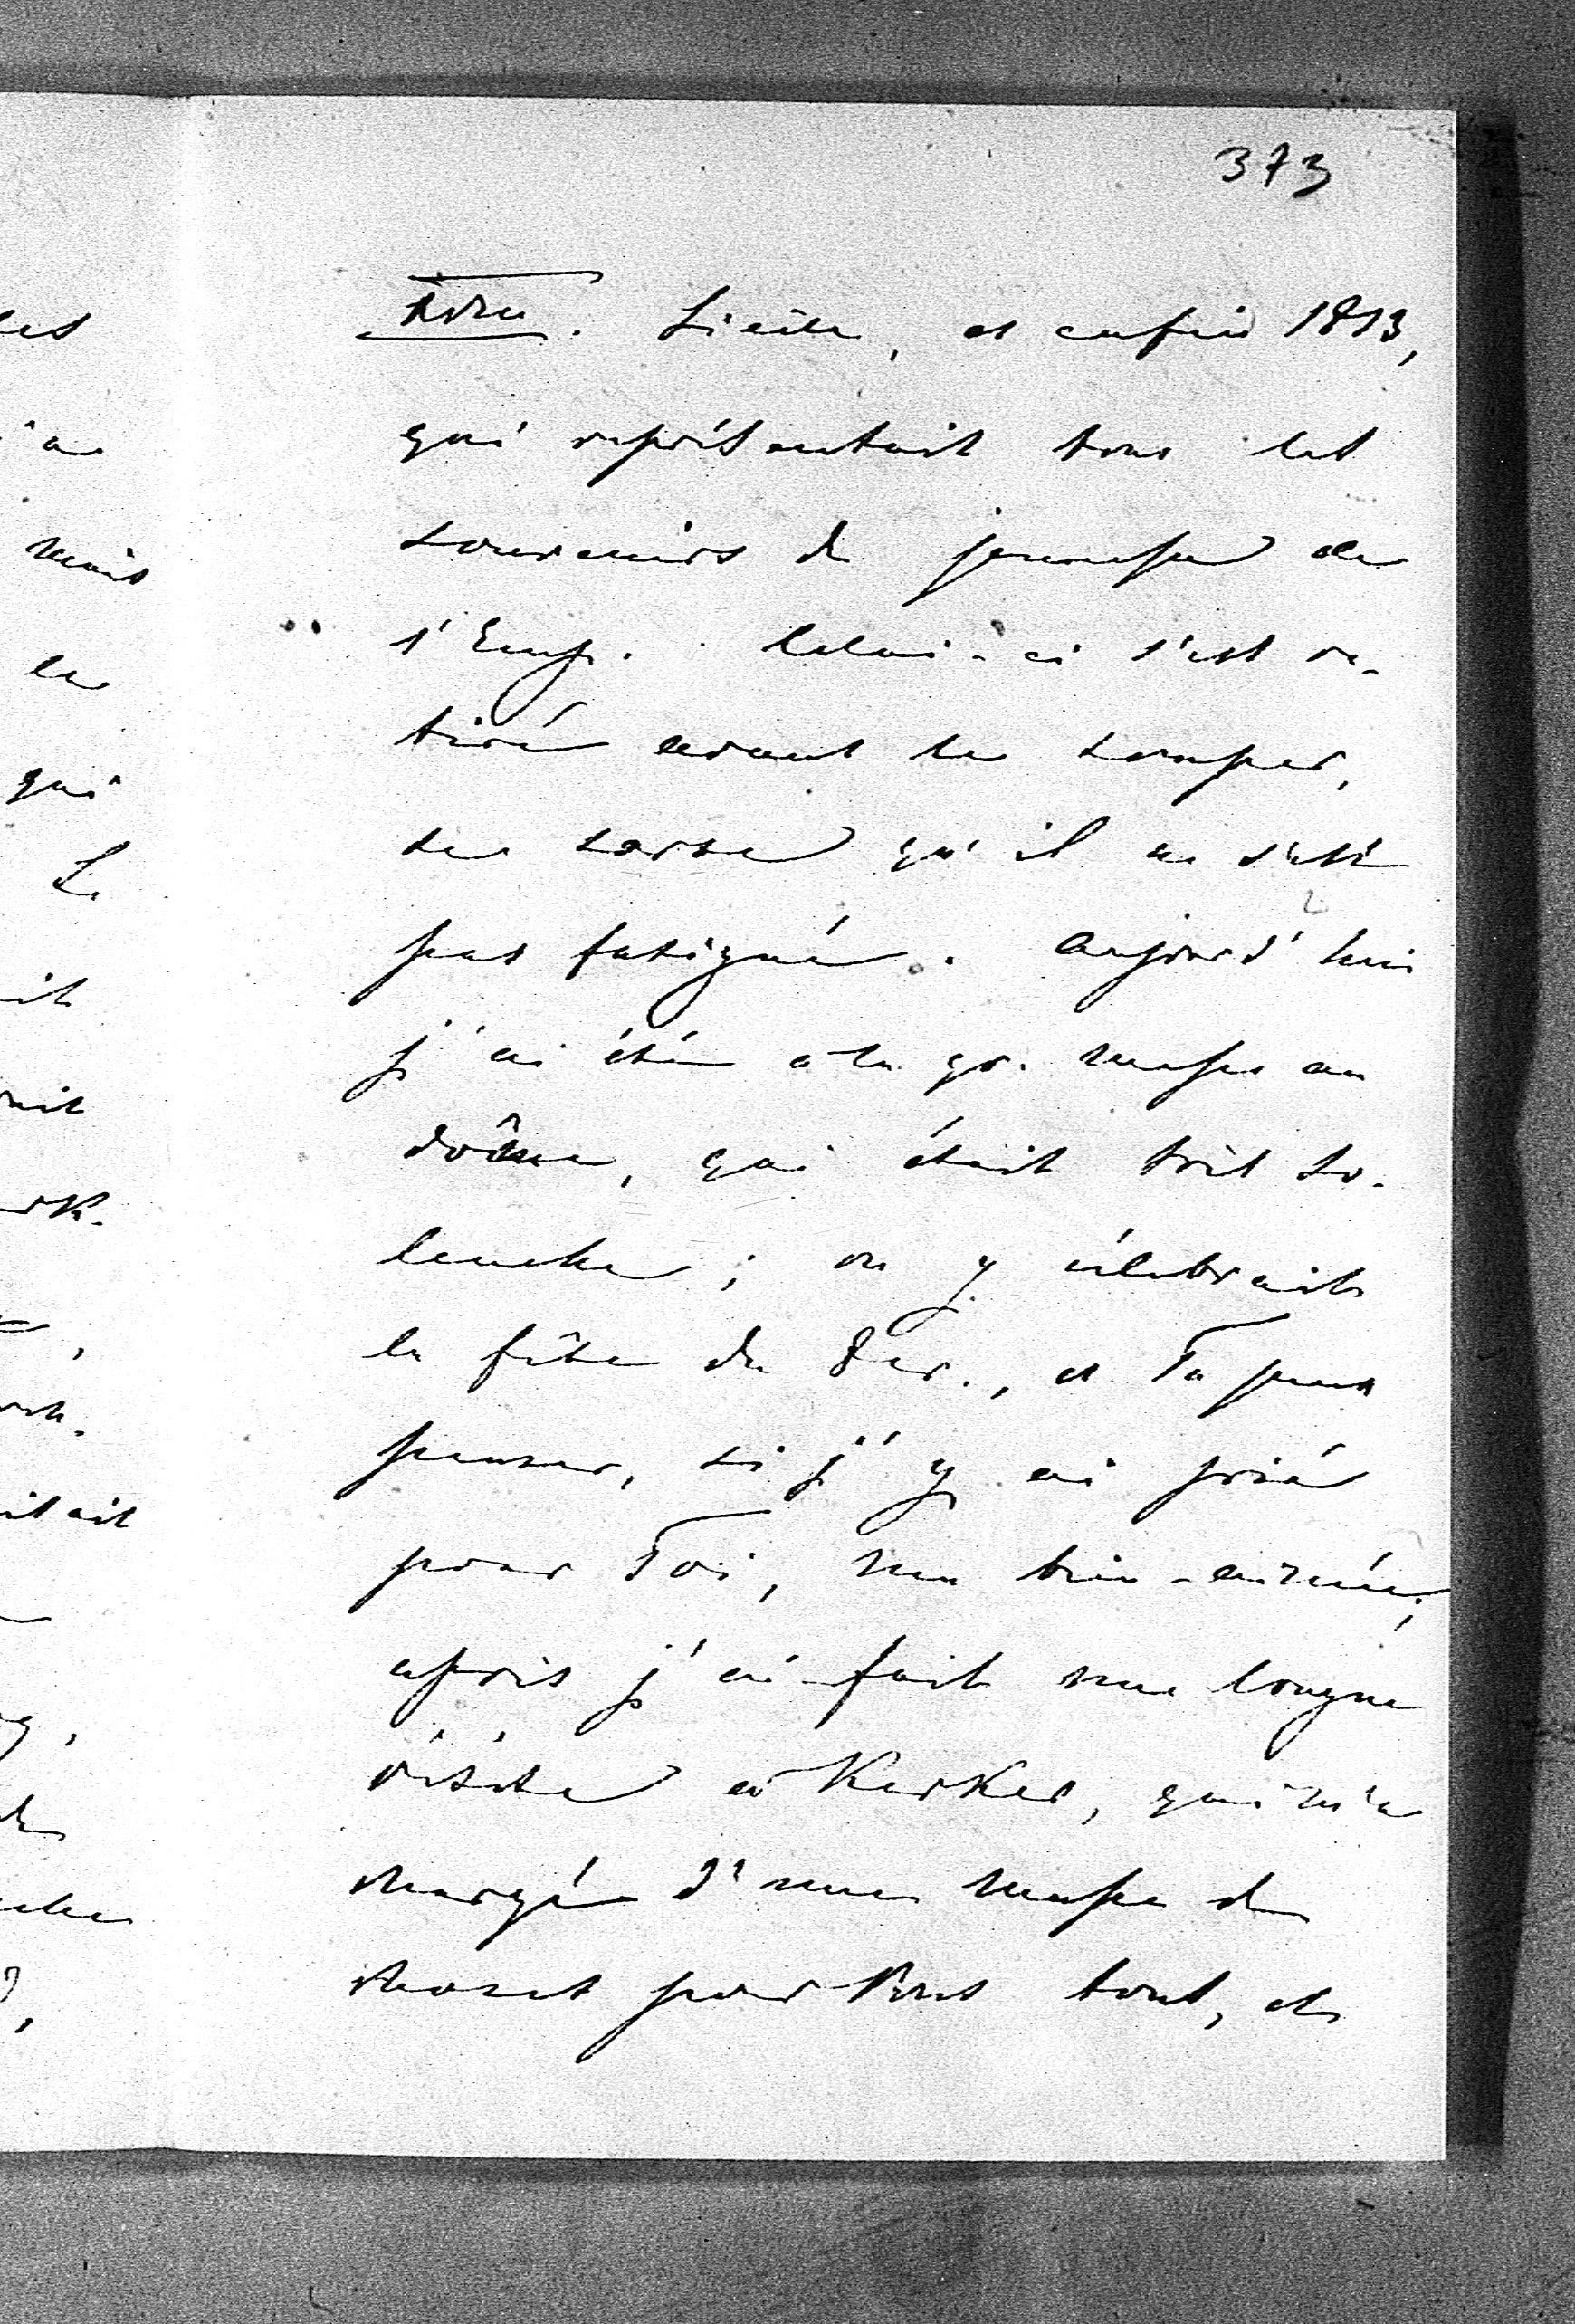 373
Siècle, et enfin 1813,
qui représentait tous les
souvenirs de jeunesse de
l'Emp. Celui-ci s'est re-
tiré avant le souper,
de sorte qu'il ne s'est
pas fatigué. Aujourd'hui
j'ai été à la gr. messe au
dôme, qui était très so-
lennelle ; on y célébrait
la fête du Ser., et Tu peux
penser, si j'y ai prié
pour Toi, ma bien-aimée;
après j'ai fait une longue
visite à Kerker, qui m'a
chargé d'une masse de
choses pour Vous tous, et
les
mais
la
qui
Le